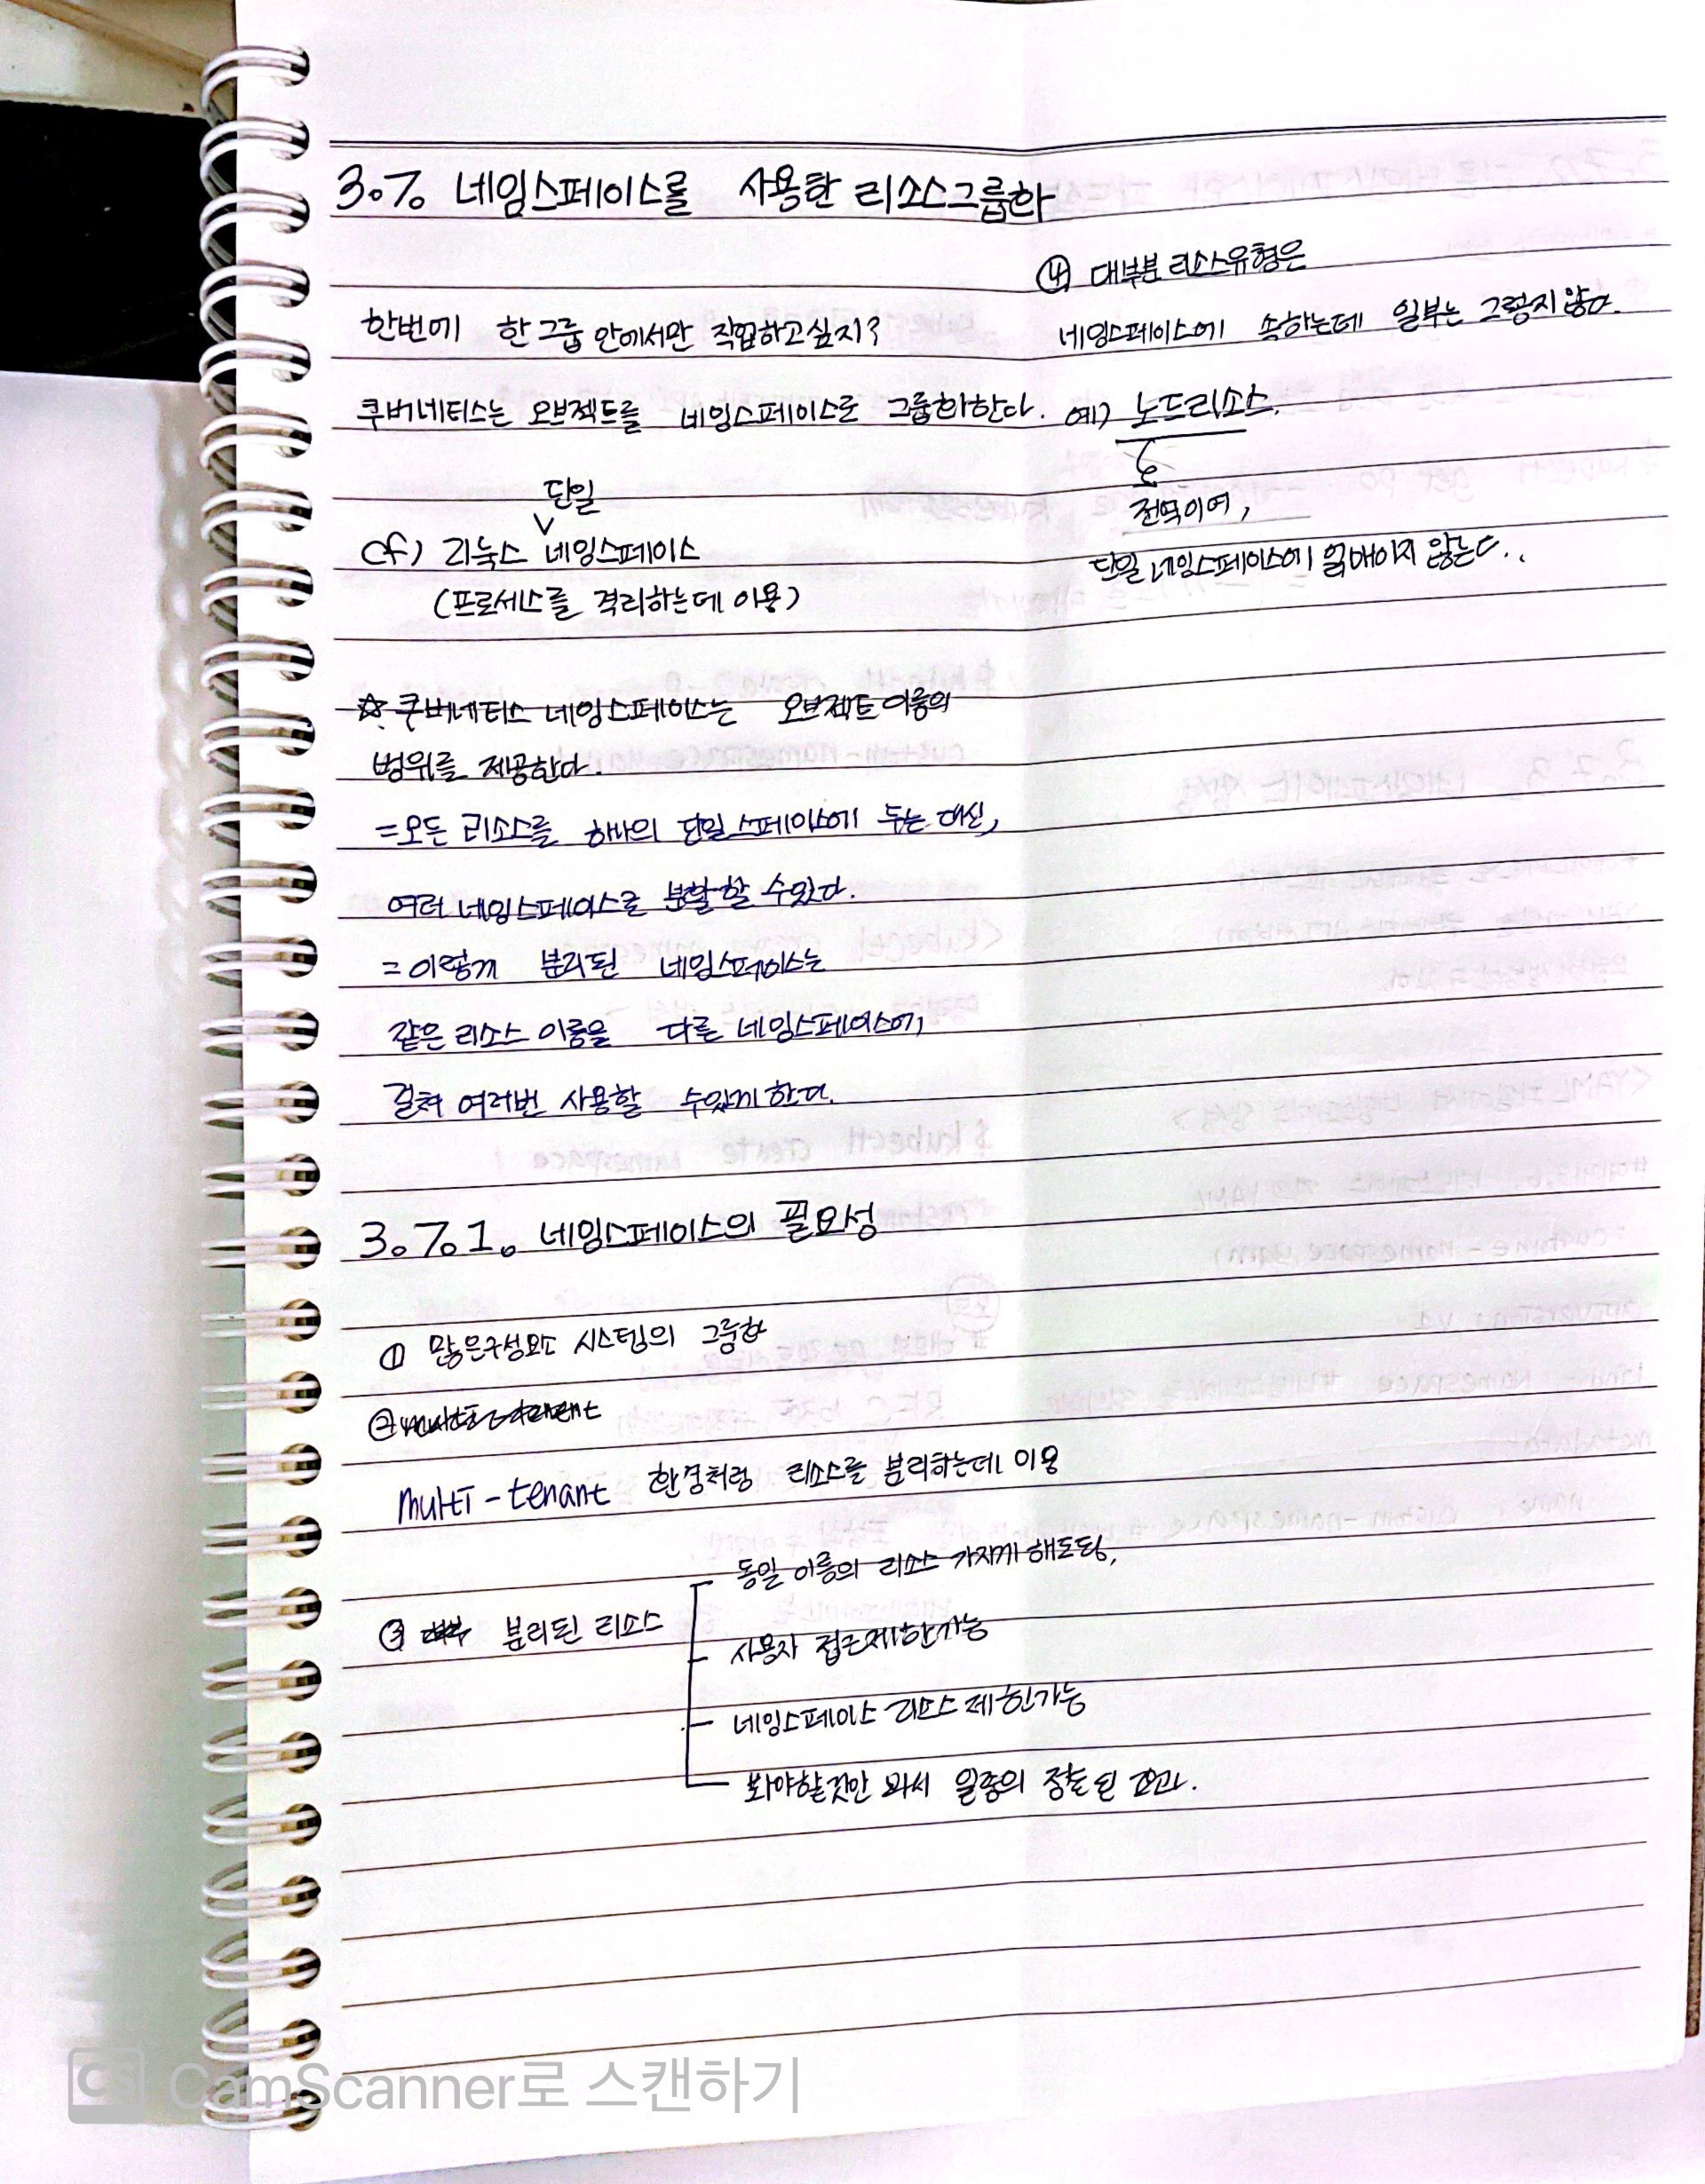 3.7. 네임스페이스를 사용한 리소스그룹화
한번에 한 그룹 안에서만 작업하고싶지?
쿠버네티스는 오브젝트를 네임스페이스로 그룹화한다.
단일
cf) 리눅스 네임스페이스
(프로세스를 격리하는데 이용)
☆ 쿠버네티스 네임스페이스는 오브젝트 이름의
범위를 제공한다.
=모든 리소스를 하나의 단일 스페이스에 두는 대신,
여러 네임스페이스로 분할 할 수있다.
=이렇게 분리된 네임스페이스는
같은 리소스 이름을 다른 네임스페이스에
걸쳐 여러번 사용할 수있게 한다.
3.7.1. 네임스페이스의 필요성
① 많은구성요소 시스템의 그룹화
②
multi-tenant 환경처럼 리소스를 분리하는데 이용
③ 분리된 리소스
동일 이름의 리소스 가지게 해도됨,
사용자 접근제한가능
네임스페이스 리소스 제한가능
봐야할것만 봐서 일종의 정돈된 효과.
④ 대부분 리소스유형은
네임스페이스에 속하는데 일부는 그렇지 않다.
예) 노드리소스.
전역이며,
단일 네임스페이스에 얽매이지 않는다..
CS CamScanner로 스캔하기